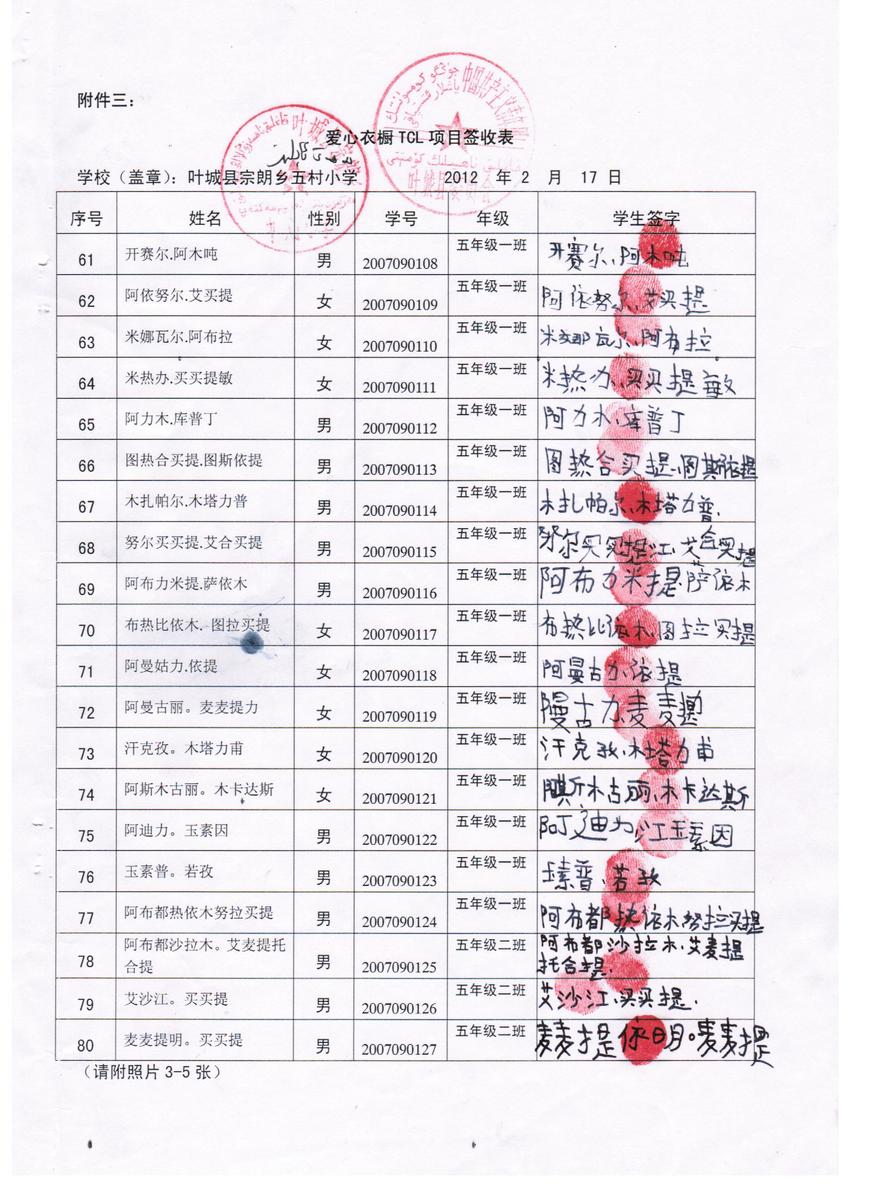 附件三：
爱心衣橱 TCL 项目签收表
学校（盖章）：叶城县宗朗乡五村小学 2012 年 2 月 17 日
序号 姓名 性别 学号 年级 学生签字
61 开赛尔.阿木吨 男 2007090108 五年级一班 开赛尔.阿木吨
62 阿依努尔.艾买提 女 2007090109 五年级一班 阿依努尔.艾买提
63 米娜瓦尔.阿布拉 女 2007090110 五年级一班 米娜瓦尔.阿布拉
64 米热办.买买提敏 女 2007090111 五年级一班 米热办.买买提敏
65 阿力木.库普丁 男 2007090112 五年级一班 阿力木.库普丁
66 图热合买提.图斯依提 男 2007090113 五年级一班 图热合买提.图斯依提
67 木扎帕尔.木塔力普 男 2007090114 五年级一班 木扎帕尔.木塔力普.
68 努尔买买提.艾合买提 男 2007090115 五年级一班 努尔买买提江.艾合买提
69 阿布力米提.萨依木 男 2007090116 五年级一班 阿布力米提.萨依木
70 布热比依木. 图拉买提 女 2007090117 五年级一班 布热比依木.图拉买提
71 阿曼姑力.依提 女 2007090118 五年级一班 阿曼古力.依提
72 阿曼古丽。麦麦提力 女 2007090119 五年级一班
73 汗克孜。木塔力甫 女 2007090120 五年级一班 汗克孜.木塔力甫
74 阿斯木古丽。木卡达斯 女 2007090121 五年级一班 木古丽.木卡达斯
75 阿迪力。玉素因 男 2007090122 五年级一班 阿迪力江玉素因
76 玉素普。若孜 男 2007090123 五年级一班 玉素普.若孜
77 阿布都热依木努拉买提 男 2007090124 五年级一班 阿布都热依木努拉买提
78 阿布都沙拉木。艾麦提托 男 2007090125 五年级二班 阿布都沙拉木.艾麦提
合提 托合提.
79 艾沙江。买买提 男 2007090126 五年级二班 艾沙江.买买提.
80 麦麦提明。买买提 男 2007090127 五年级二班 麦麦提依明。麦麦提
（请附照片 3-5 张）